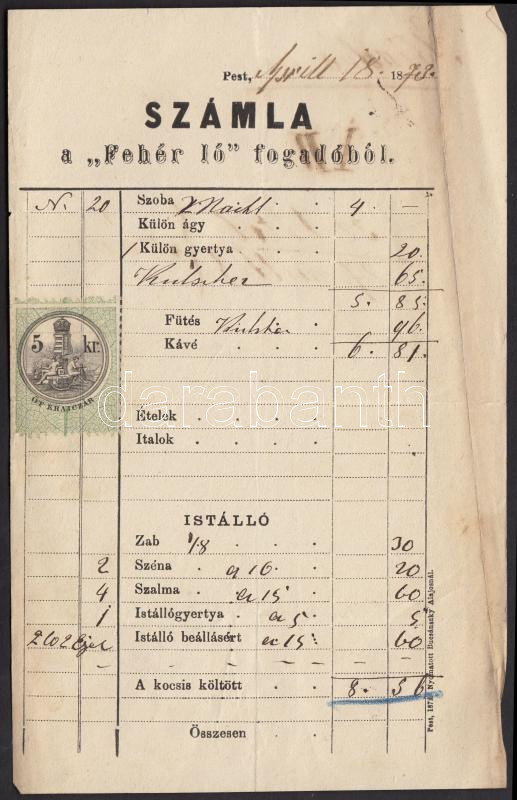 Pest, April 18. 1873.
SZÁMLA
a „Fehér ló” fogadóból.
N. 20 Szoba 2 Nacht 4. —
Külön ágy
1 Külön gyertya 20.
Kutscher 65.
5. 85.
Fütés 96.
Kávé 6. 81.
5 kr.
ÖT KRAJCZÁR
darabanth
Ételek
Italok
ISTÁLLÓ
Zab 1/8 30
2 Széna a 10. 20
4 Szalma a 15 60
1 Istállógyertya a 5 5
Istálló beállásért a 15: 60
A kocsis költött 8. 56
Összesen
Pest, 187. Nyomatott Buzsánszky Alajosnál.